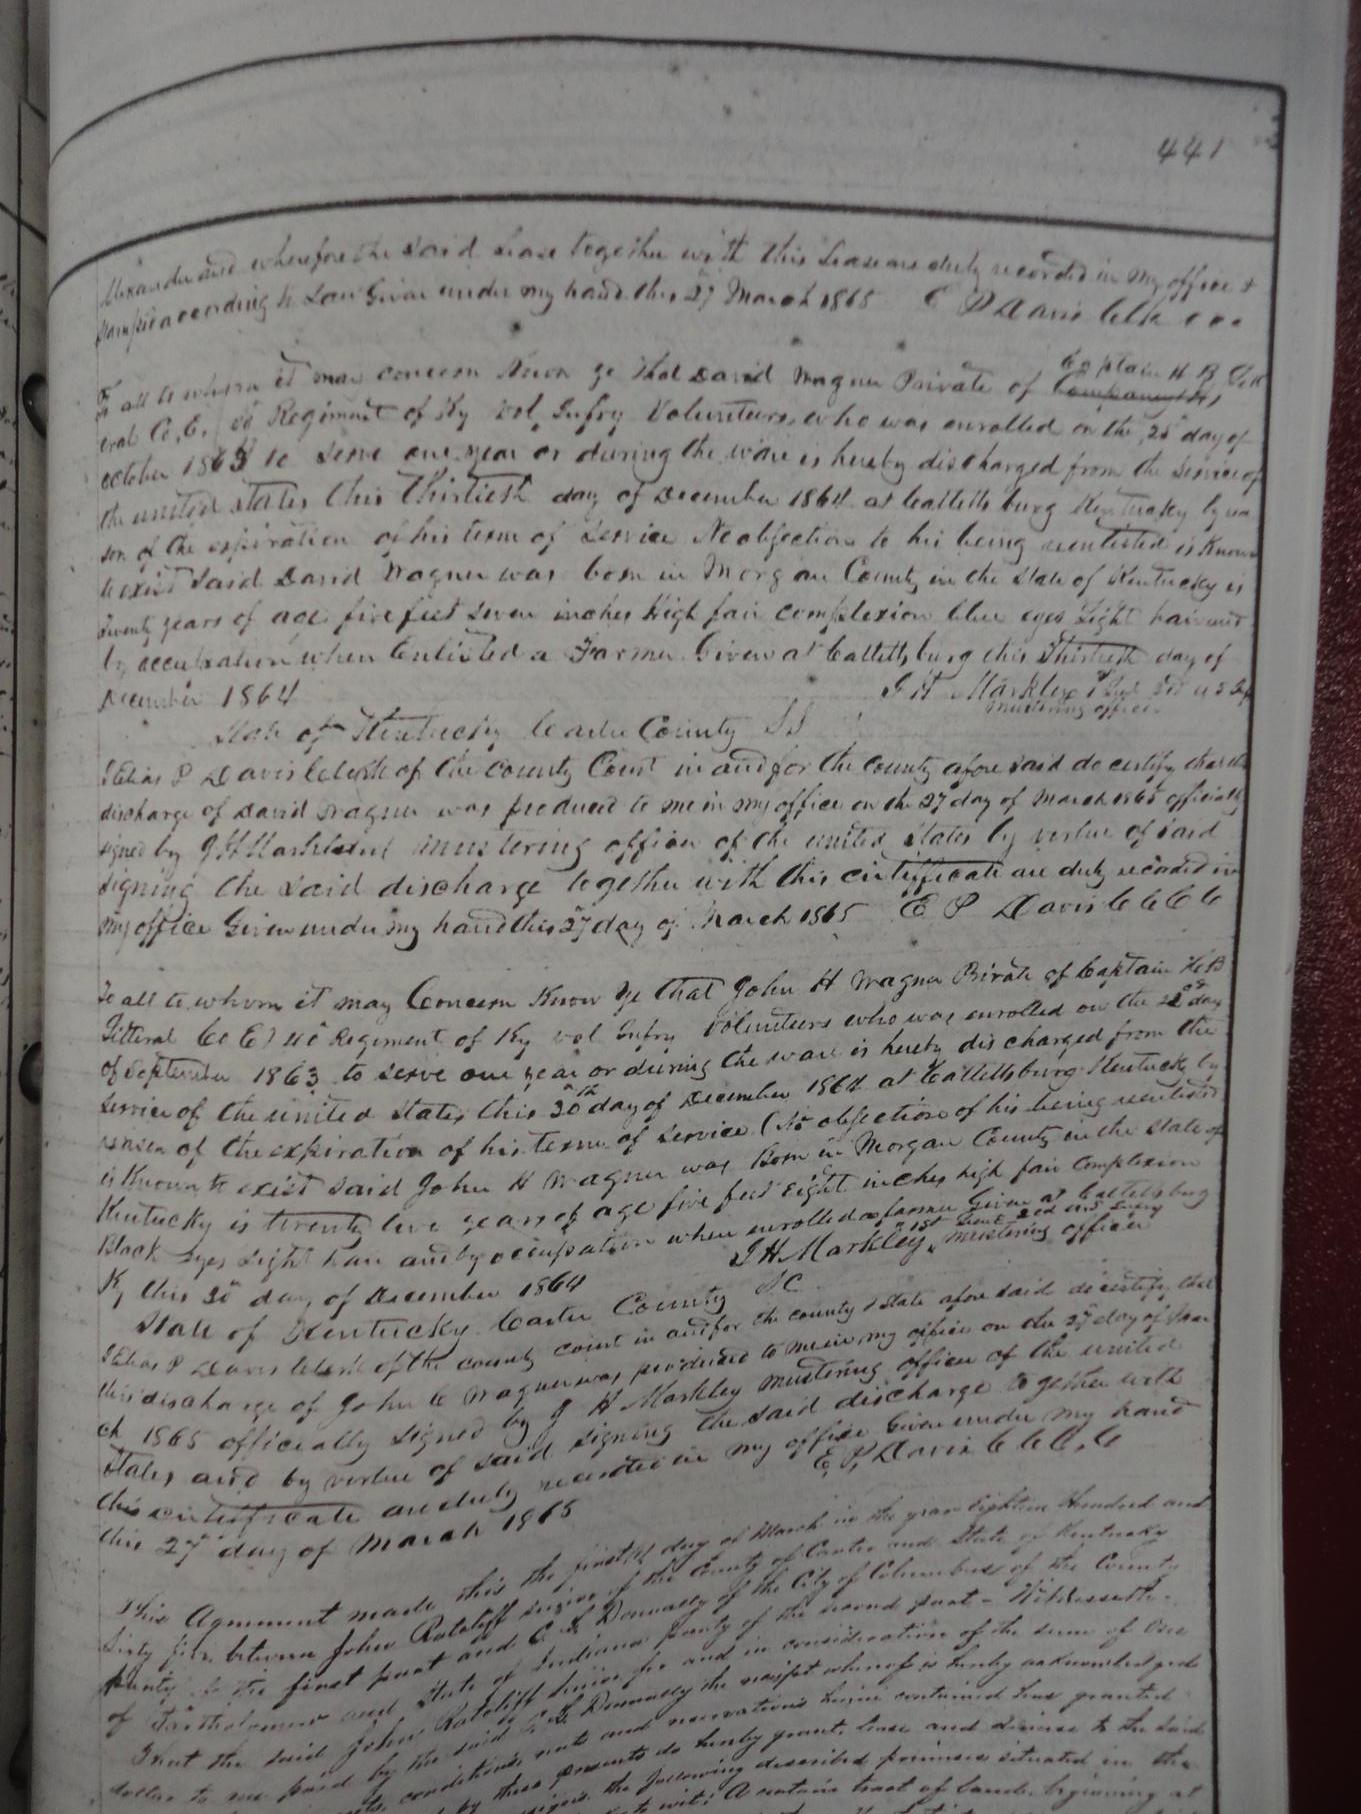 441
Alexander and wherefore the said Lease together with this Lease are duly recorded in my office &
stamped according to Law Given under my hand this 27 March 1865 E P Davis Clk c c c
Captain H B Litt
To all to whom it may concern Know ye that David Wagner Private of Company
eral Co, E, 40 Regiment of Ky Vol, Infry Volunteers who was enrolled on the 25 day of
October 1863 to serve one year or during the ware is hereby discharged from the service of
the united states this Thirtieth day of December 1864 at Catlettsburg Kentucky by rea
son of the expiration of his term of service No objection to his being reentisted is Known
to exist Said David Wagner was born in Morgan County in the State of Kentucky is
Twenty years of age five feet seven inches High fair complexion blue eyes Light hair and
by occupation when Enlisted a Farmer Given at Catlettsburg this Thirtieth day of
December 1864
J H Markley 1st
mustering officer
State of Kentucky Carter County SS
I Elias P Davis Clerk of the County Court in and for the county afore said do certify that the
discharge of David Wagner was produced to me in my office on the 27 day of March 1865 officially
signed by J H mustering officer of the united States by virtue of said
signing the said discharge together with this certificate are duly recorded in
my office Given under my hand this 27 day of March 1865 E P Davis C C C C
To all to whom it may Concern Know Ye that John H Wagner Private of Captain H B
Litteral Co E) 40 Regiment of Ky vol Infry Volunteers who was enrolled on the day
of September 1863 to serve one year or during the ware is hereby discharged from the
service of the united states this 30th day of December 1864 at Catlettsburg Kentucky by
reason of the expiration of his term of service (No objection of his being reentisted
is Known to exist said John H Wagner was Born in Morgan County in the State of
Kentucky is twenty two years of age five feet eight inches high fair complexion
Black eyes Light hair and by occupation when enrolled a farmer Given at Catlettsburg
Ky this 30 day of December 1864 J H Markley 1st Lieut 2nd Infry mustering officer
State of Kentucky Carter County SC
I Elias P Davis Clerk of the county court in and for the county & state afore said do certify that
this discharge of John H Wagner was produced to me in my office on the 27 day of Mar
ch 1865 officially signed by J H Markley mustering officer of the united
States and by virtue of said signing the said discharge together with
this certificate are duly recorded in my office Given under my hand
this 27 day of March 1865 E, P, Davis C C C, C
This Agreement made this the first day of March in the year Eighteen Hundred and
Sixty five between John Ratcliff Senior of the County of Carter and State of Kentucky
party of the first part and C L Donnally of the City of Columbus of the County
of Bartholomew and State of Indiana party of the second part - Witnesseth.
That the said John Ratcliff Senior for and in consideration of the sum of One
dollar to me paid by the said C L Donnally the receipt whereof is hereby acknowledged
conditions rents and reservations herein contained has granted
by these presents do hereby grant, lease and demise to the said
the following described premises situated in the
to wit: A certain tract of land, beginning at